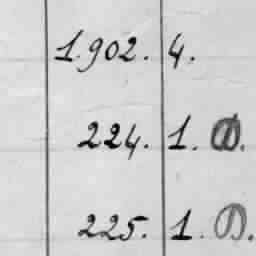 1.902. 4.
224. 1. D.
225. 1. D.